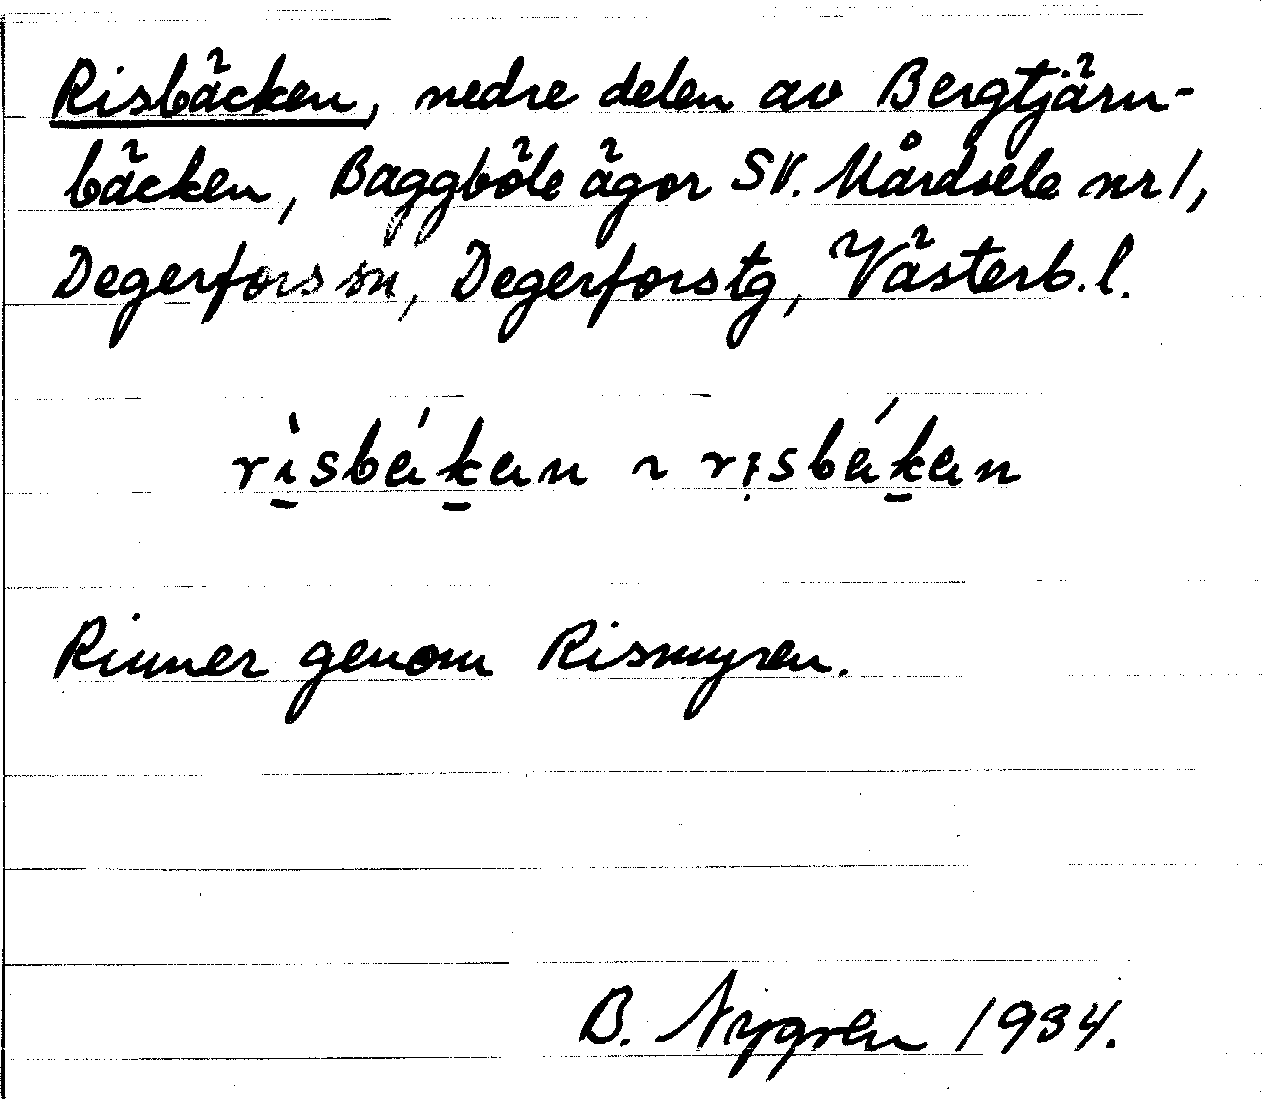 Risbäcken, nedre delen av Bergtjärn-
bäcken, Baggböle ägor SV. Mårdsele nr 1,
Degerfors sn, Degerfors tg, Västerb. l.
rìsbákan ~ risbákan
Rinner genom Rismyren.
B. Nygren 1934.